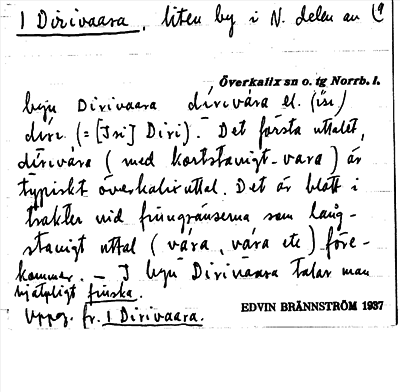 1 Dirivaara, liten by i N. delen av (9
Överkalix sn o. tg Norrb. l.
byn Dirivaara dírivára el. (isi)
diri (= [Jsi] Diri). Det första uttalet,
dirivara (med kortstavigt -vara) är
typiskt överkalixuttal. Det är blott i
trakten vid finngränserna som lång-
stavigt uttal (våra, vára etc) före-
kommer. – I byn Dirivaara talar man
hjälpligt finska.
Uppg. fr. 1 Dirivaara.
EDVIN BRÄNNSTRÖM 1937